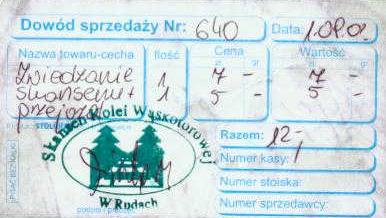 Dowód sprzedaży Nr: 640 Data:
Nazwa towaru-cecha Ilość Cena Wartość
zł gr zł gr
Zwiedzanie 1 7 - 7 -
skansenu + 1 5 - 5 -
przejazd
Skansen Kolei Wąskotorowej
W Rudach
Razem: 12,-
Numer kasy:
Numer stoiska:
Numer sprzedawcy: